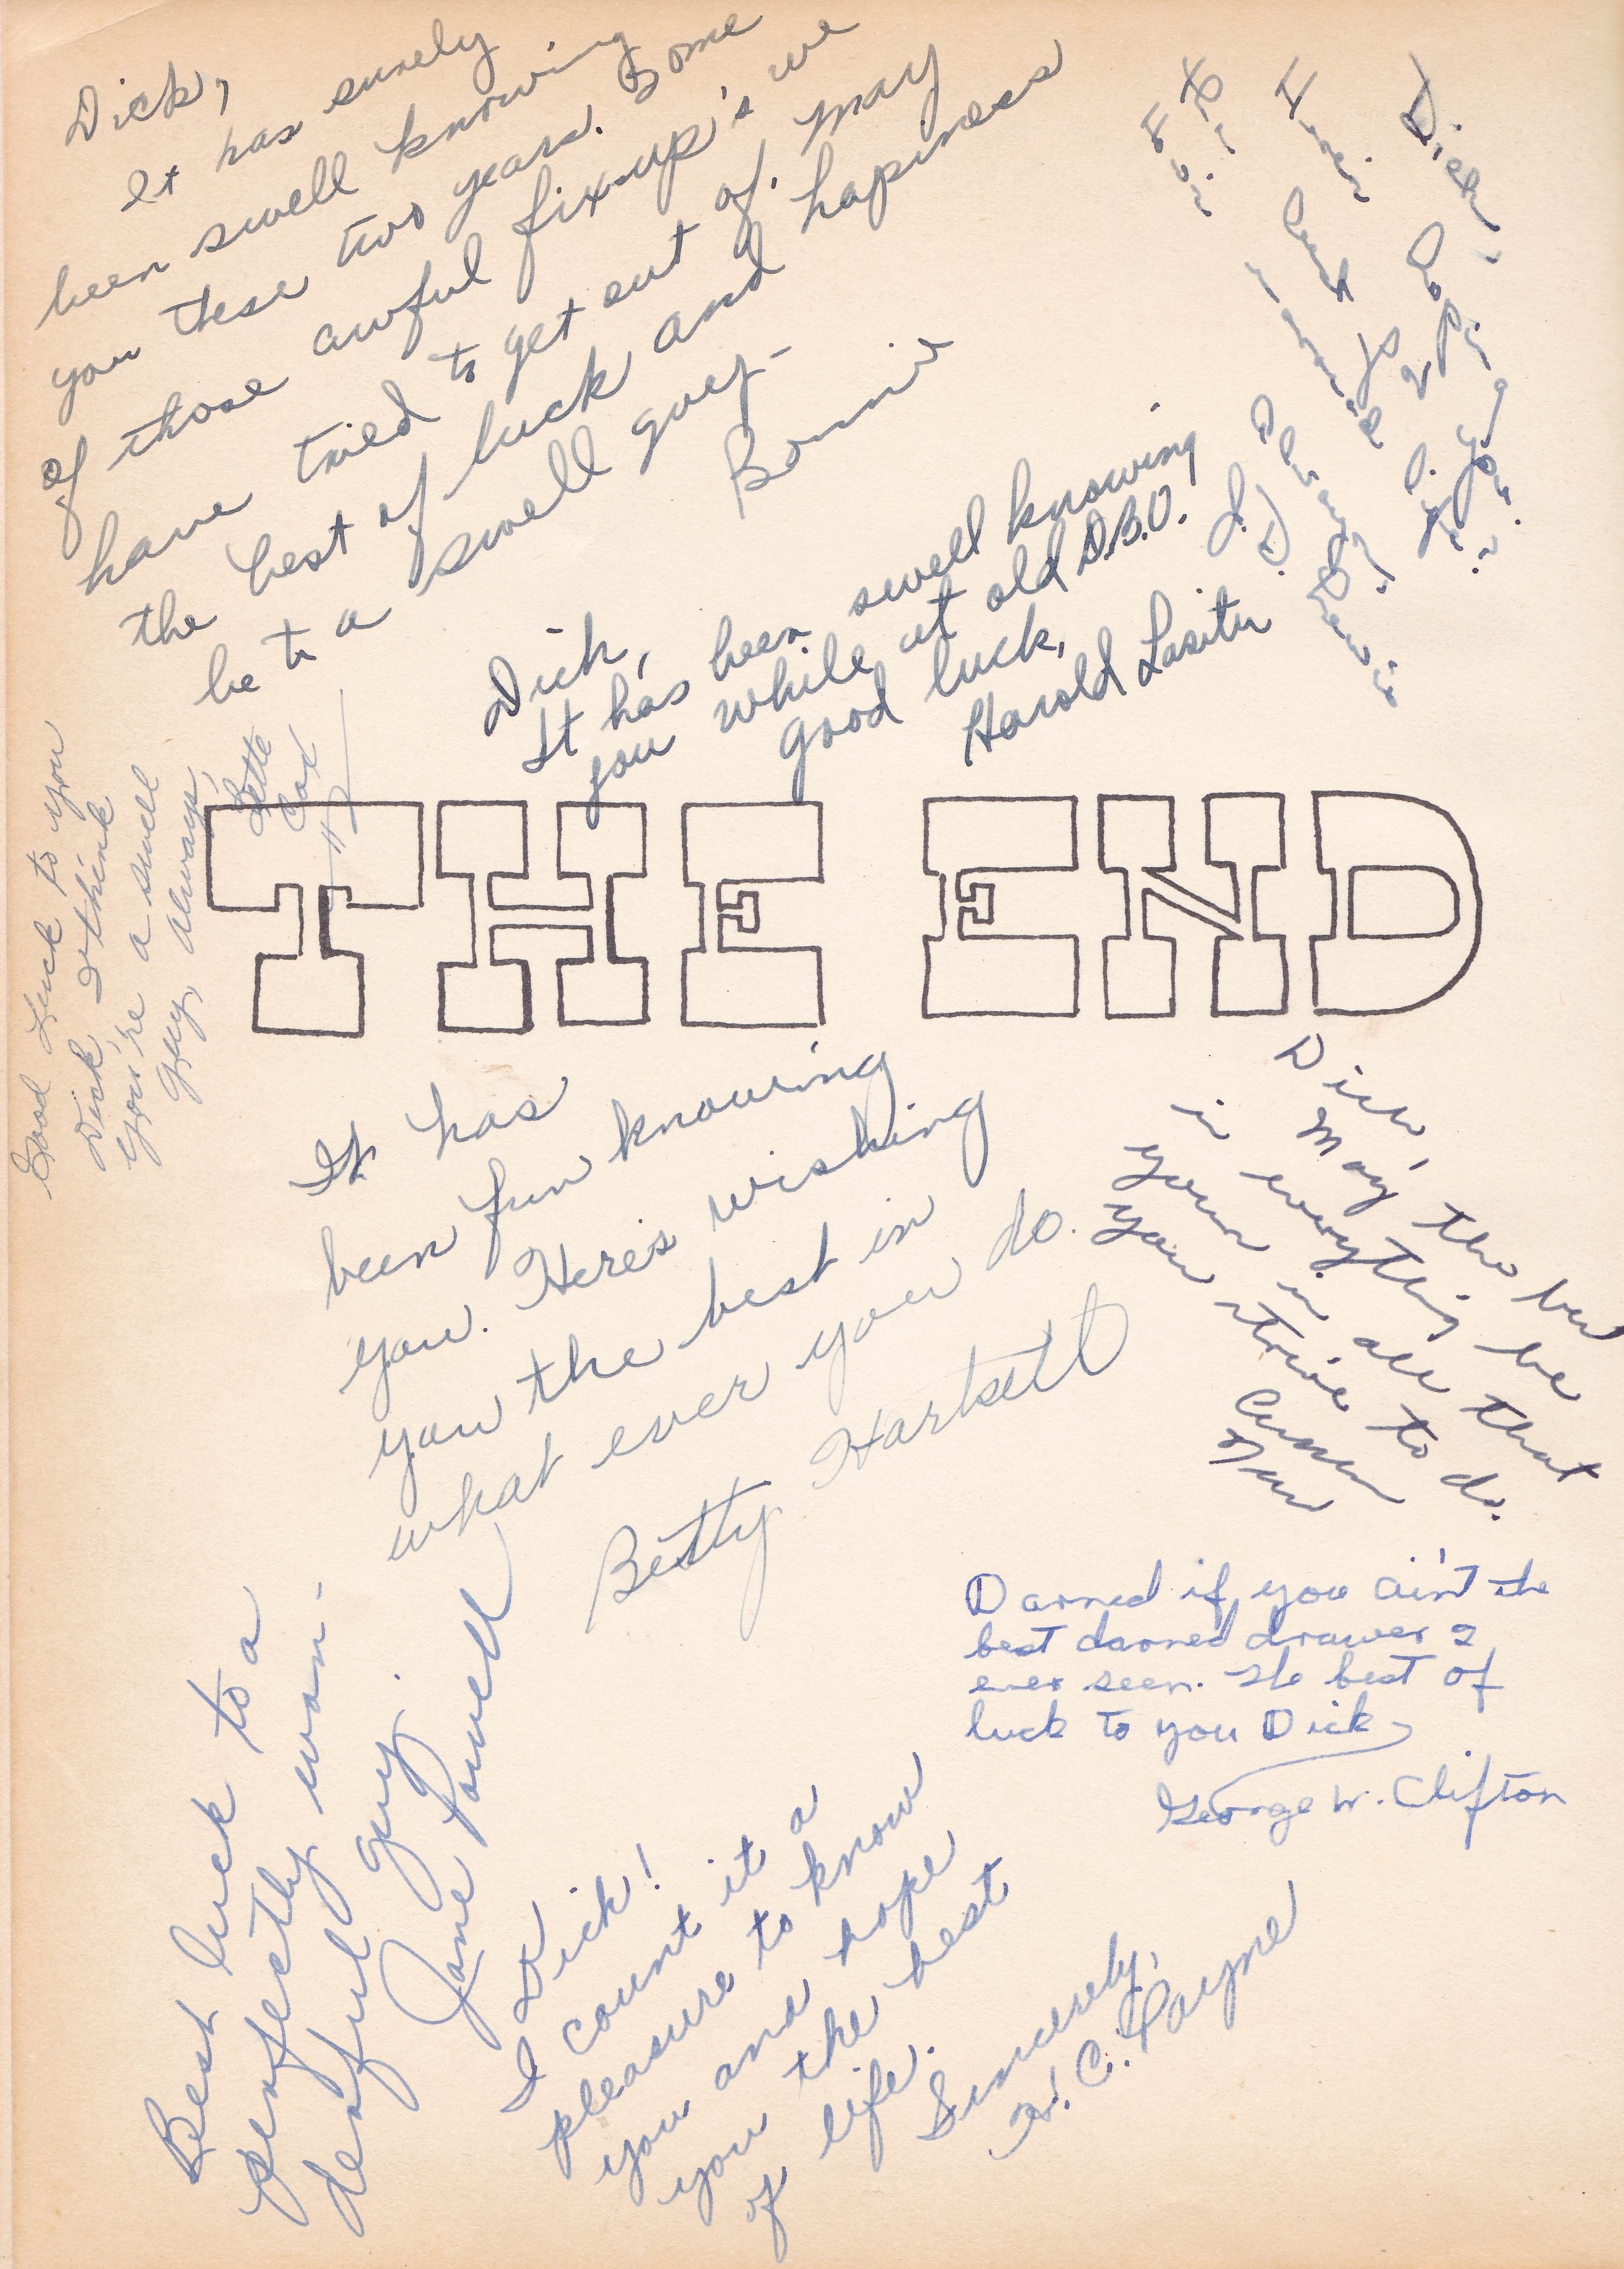 Dick,
It has surely
been swell knowing
you these two years. Some
of those awful fix-up's we
have tried to get out of. May
the best of luck and hapiness
be to a swell guy-
Bonnie
Dick,
Hoping you
Dick,
It has been swell knowing
you while at old D.B.O.
good luck,
Harold Lasiter
Good Luck to you
Dick, I think
you're a swell
guy, always,
Bette
Cox
THE END
It has
been fun knowing
you. Here's wishing
you the best in
what ever you do.
Betty Harkett
Dick,
May the best
in everything be
your in all that
you strive to do.
Darned if you ain't the
best darned drawer I
ever seen. The best of
luck to you Dick
George W. Clifton
Best luck to a
perfectly won-
derful guy.
Jane Powell
Dick!
I count it a
pleasure to know
you and hope
you the best
of life.
Sincerely,
H. C. Payne